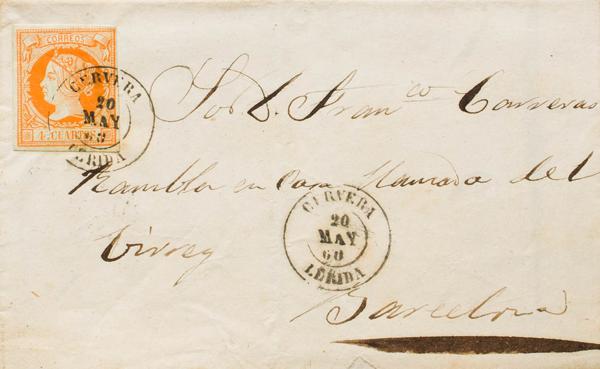 CORREOS
4 CUARTOS
CERVERA
20
MAY
60
LERIDA
Sor D. Franco Carreras
Rambla en Casa llamada del
Virrey
CERVERA
20
MAY
60
LERIDA
Barcelona